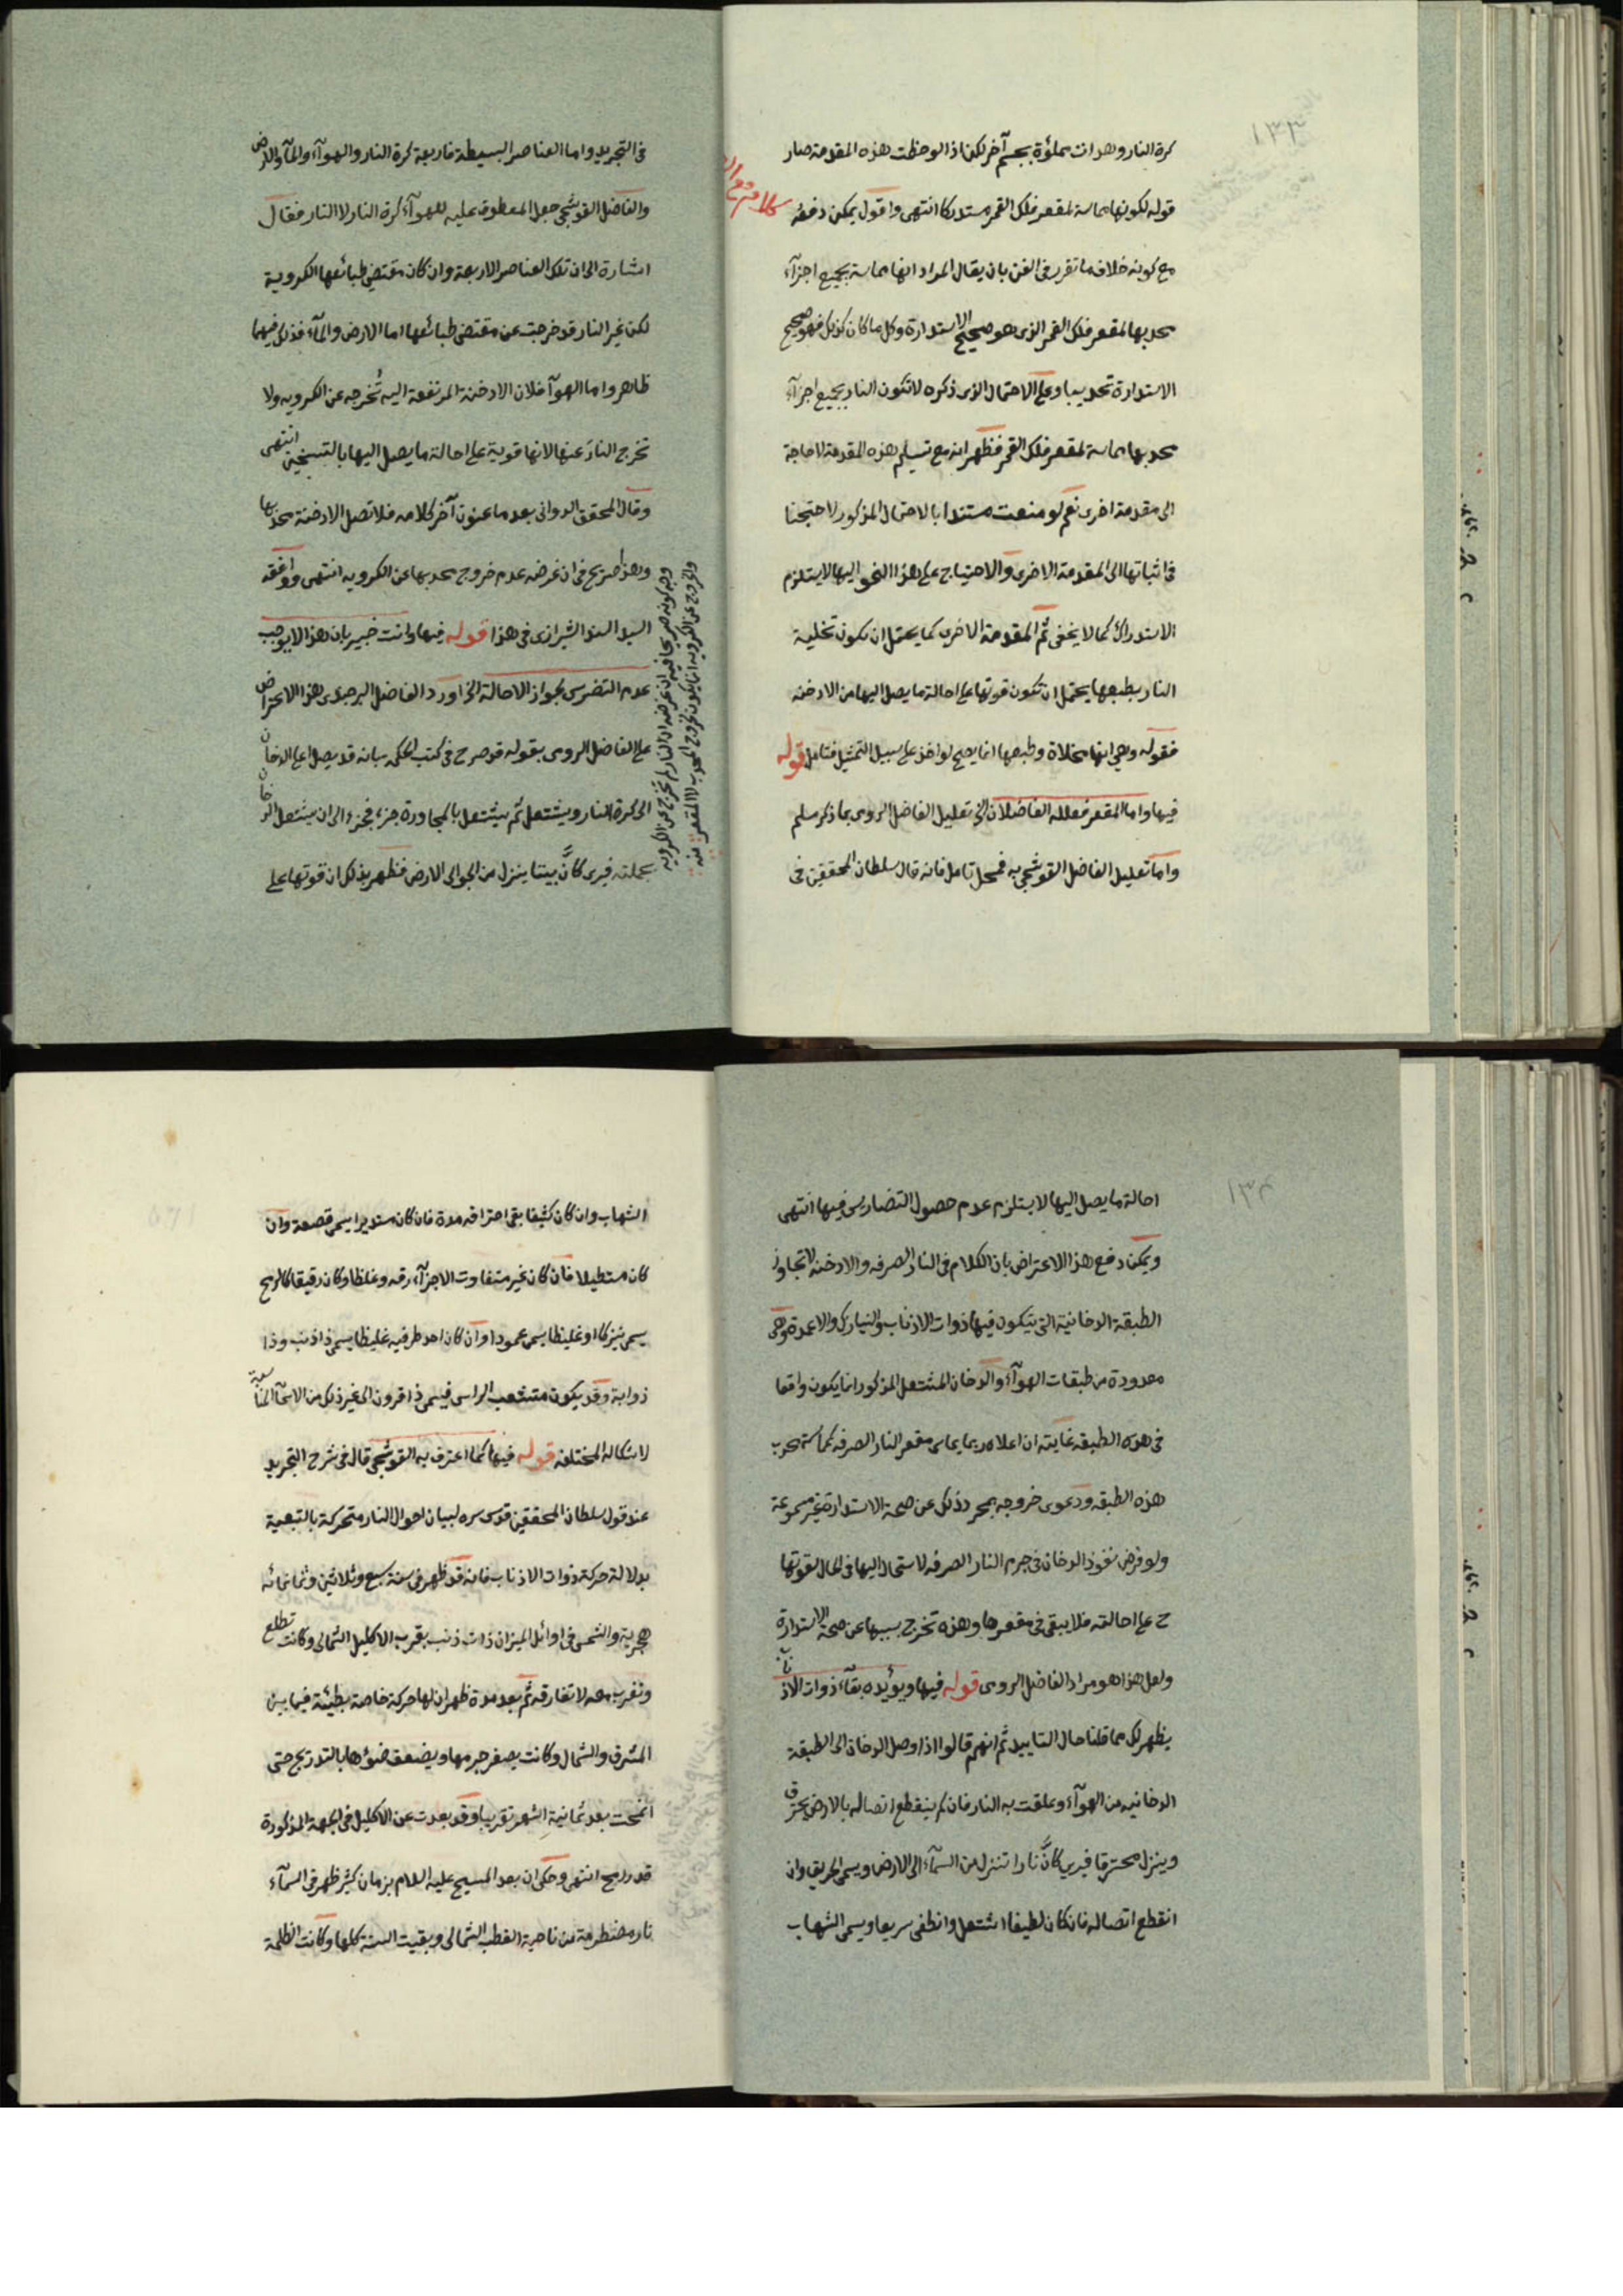 ١٣٣
كرة النار وهذا ان مملؤة بجسم آخر لكن اذا لوحظت هذه المقدمة صار
قوله لكونها مماسة لمقعر فلك القمر مستدركا انتهى واقول يمكن دفعه
مع كونه خلاف ما تقرر فى الفن بان يقال المراد انها مماسة بجميع اجزآء
محدبها لمقعر فلك القمر الذى هو صحيح الاستدارة وكل ما كان كذلك فهو صحيح
الاستدارة تحديبا وعلى الاحتمال الذى ذكره لا تكون النار بجميع اجزآء
محدبها مماسة لمقعر فلك القمر فظهر انه مع تسليم هذه المقدمة لا حاجة
الى مقدمة اخرى نعم لو منعت مستندا بالاحتمال المذكور لاحتجنا
فى اثباتها الى المقدمة الاخرى والاحتياج على هذا النحو اليها لا يستلزم
الاستدراك كما لا يخفى ثم المقدمة الاخرى كما يحتمل ان يكون تخلية
النار بطبعها يحتمل ان تكون قوتها على احالة ما يصل اليها من الادخنة
فقوله وهى انها مخلاة وطبعها انما يصح لو اخذ على سبيل التمثيل فتامل قوله
فيها واما المقعر فعلله الفاضلان الخ تعليل الفاضل الرومى بما ذكر مسلم
واما تعليل الفاضل القوشجى به فمحل تامل فانه قال سلطان المحققين فى
فى التجريد واما العناصر البسيطة فاربعة كرة النار والهوآء والمآء والارض
والفاضل القوشجى جعل المعطوف عليه للهوآء كرة النار لا النار فقال
اشارة الى ان تلك العناصر الاربعة وان كان مقتضى طبائعها الكروية
لكن غير النار قد خرجت عن مقتضى طبائعها اما الارض والمآء فذلك فيهما
ظاهر واما الهوآء فلان الادخنة المرتفعة اليه تُخرجه عن الكروية ولا
تخرج النارَ عنها لانها قوية على احالة ما يصل اليها بالتسخين انتهى
وقال المحقق الدوانى بعد ما عنون آخر كلامه فلا تصل الادخنة محدبها
وهذا صريح فى ان غرضه عدم خروج محدبها عن الكروية انتهى ووافقه
السيد السند الشيرازى فى هذا قوله فيها وانت خبير بان هذا لا يوجب
عدم التضرس لجواز الاحالة الخ اورد الفاضل البرجندى هذا الاعتراض
على الفاضل الرومى بقوله قد صرح فى كتب الحكمة بانه قد يصل اعلى الدخان
الى كرة النار ويشتعل ثم يشتعل بالمجاورة جزء فجزء الى ان يشتعل الدخان
بجملته فيرى كانَّ بيتا ينزل من الجو الى الارض فظهر بذلك ان قوتها على
وجه كونه صريحا فيه ان غرضه ان النار لم تخرج عن الكروية
والخروج عن الكروية انما يكون بخروج المحدب لا المقعر منه
١٣٤
احالة ما يصل اليها لا يستلزم عدم حصول التضاريس فيها انتهى
ويمكن دفع هذا الاعتراض بان الكلام فى النار الصرفة والادخنة لا تجاوز
الطبقة الدخانية التى يتكون فيها ذوات الاذناب والنيازك والاعمدة وهى
معدودة من طبقات الهوآء والدخان المشتعل المذكور انما يكون واقعا
فى هذه الطبقة غايته ان اعلاه ربما يماس مقعر النار الصرفة كماسة محدب
هذه الطبقة ودعوى خروجه بمجرد ذلك عن صحة الاستدارة غير مسموعة
ولو فرض نفوذ الدخان فى جرم النار الصرفة لاستحال اليها فى الحال لقوتها
ح على احالته فلا يبقى فى مقعرها وهذه تخرج بسببها عن صحة الاستدارة
ولعل هذا هو مراد الفاضل الرومى قوله فيها ويؤيده بقآء ذوات الاذناب
يظهر لك مما قلنا حال التاييد ثم انهم قالوا اذا وصل الدخان الى الطبقة
الدخانية من الهوآء وعلقت به النار فان لم ينقطع اتصاله بالارض يحترق
وينزل محترقا فيرى كانَّ نارا تنزل من السمآء الى الارض ويسمى الحريق وان
انقطع اتصاله فان كان لطيفا اشتعل وانطفى سريعا ويسمى الشهاب
الشهاب وان كان كثيفا بقى احتراقه مدة فان كان مستديرا يسمى قصعة وان
كان مستطيلا فان كان غير متفاوت الاجزآء رقة وغلظا وكان دقيقا كالرمح
يسمى نيزكا او غليظا يسمى عمودا وان كان احد طرفيه غليظا يسمى ذا ذنب وذا
ذوابة وقد يكون متشعب الراس فيسمى ذا قرون الى غير ذلك من الاسمآء المناسبة
لاشكاله المختلفة قوله فيها كما اعترف به القوشجى قال فى شرح التجريد
عند قول سلطان المحققين قدس سره لبيان احوال النار متحركة بالتبعية
بدلالة حركة ذوات الاذناب فانه قد ظهر فى سنة سبع وثلاثين وثمانمائه
هجرية والشمس فى اوائل الميزان ذات ذنب بقرب الاكليل الشمالى وكانت تطلع
وتغرب معه لا تفارقه ثم بعد مدة ظهر ان لها حركة خاصة بطيئة فيما بين
المشرق والشمال وكانت يصغر جرمها ويضعف ضوؤها بالتدريج حتى
انمحت بعد ثمانية اشهر تقريبا وقد بعدت عن الاكليل فى الجهة المذكورة
قدر رمح انتهى وحكى ان بعد المسيح عليه السلام بزمان كثير ظهر فى السمآء
نار مضطرمة من ناحية القطب الشمالى وبقيت السنة كلها وكانت الظلمة